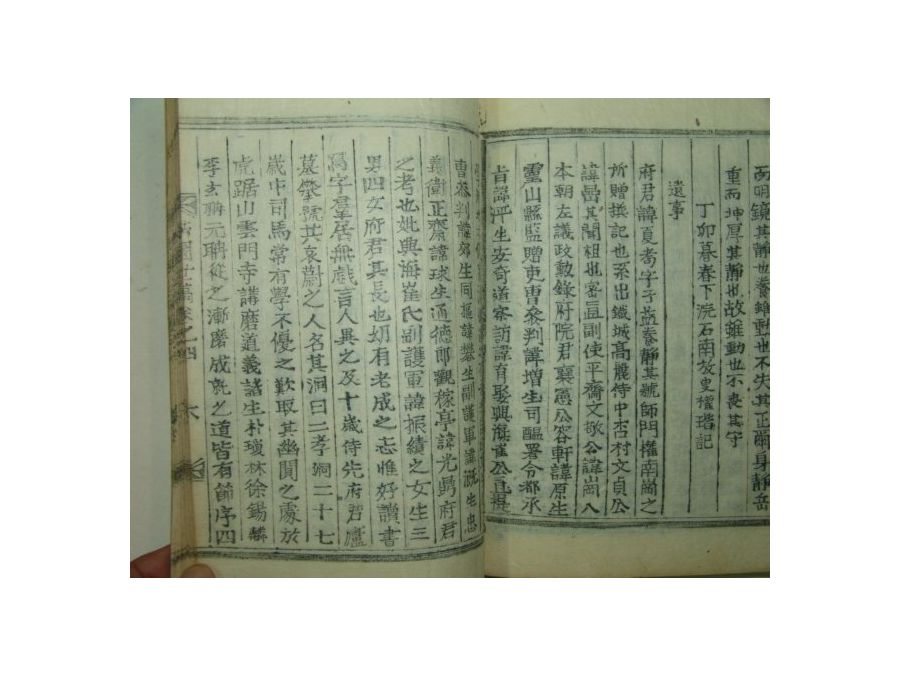 兩明鏡其靜也養雖動也不失其正爾身靜岳
重而坤厚其靜也故雖動也不喪其守
丁卯暮春下浣石南放叟權瑎記
遺事
府君諱夏耈字子益養靜其號師門權南崗之
所贈撰記也系出鐵城高麗侍中杏村文貞公
諱嵒其聞祖也密直副使平齋文敬公諱崗八
本朝左議政勳錄府院君襄憲公容軒諱原生
靈山縣監贈吏曹參判諱增生司醞署令都承
旨諱泙生安奇道察訪諱育娶興海崔公
曹參判諱郊生同樞諱攀生副護軍諱溉生忠
義衛正齋諱球生通德郎觀稼亭諱光鼎府君
之考也妣興海崔氏副護軍諱振績之女生三
男四女府君其長也幼有老成之志惟好讀書
爲字羣居無戲言人異之及十歲侍先府君廬
墓攀號共哀蔚之人名其洞曰二孝洞二十七
歲中司馬常有學不優之歎取其幽閒之處於
虎踞山雲門寺講磨道義諸生朴瓊林徐錫麟
李玄聃元聘從之漸磨成就之道皆有節序四
世稿卷之四
六